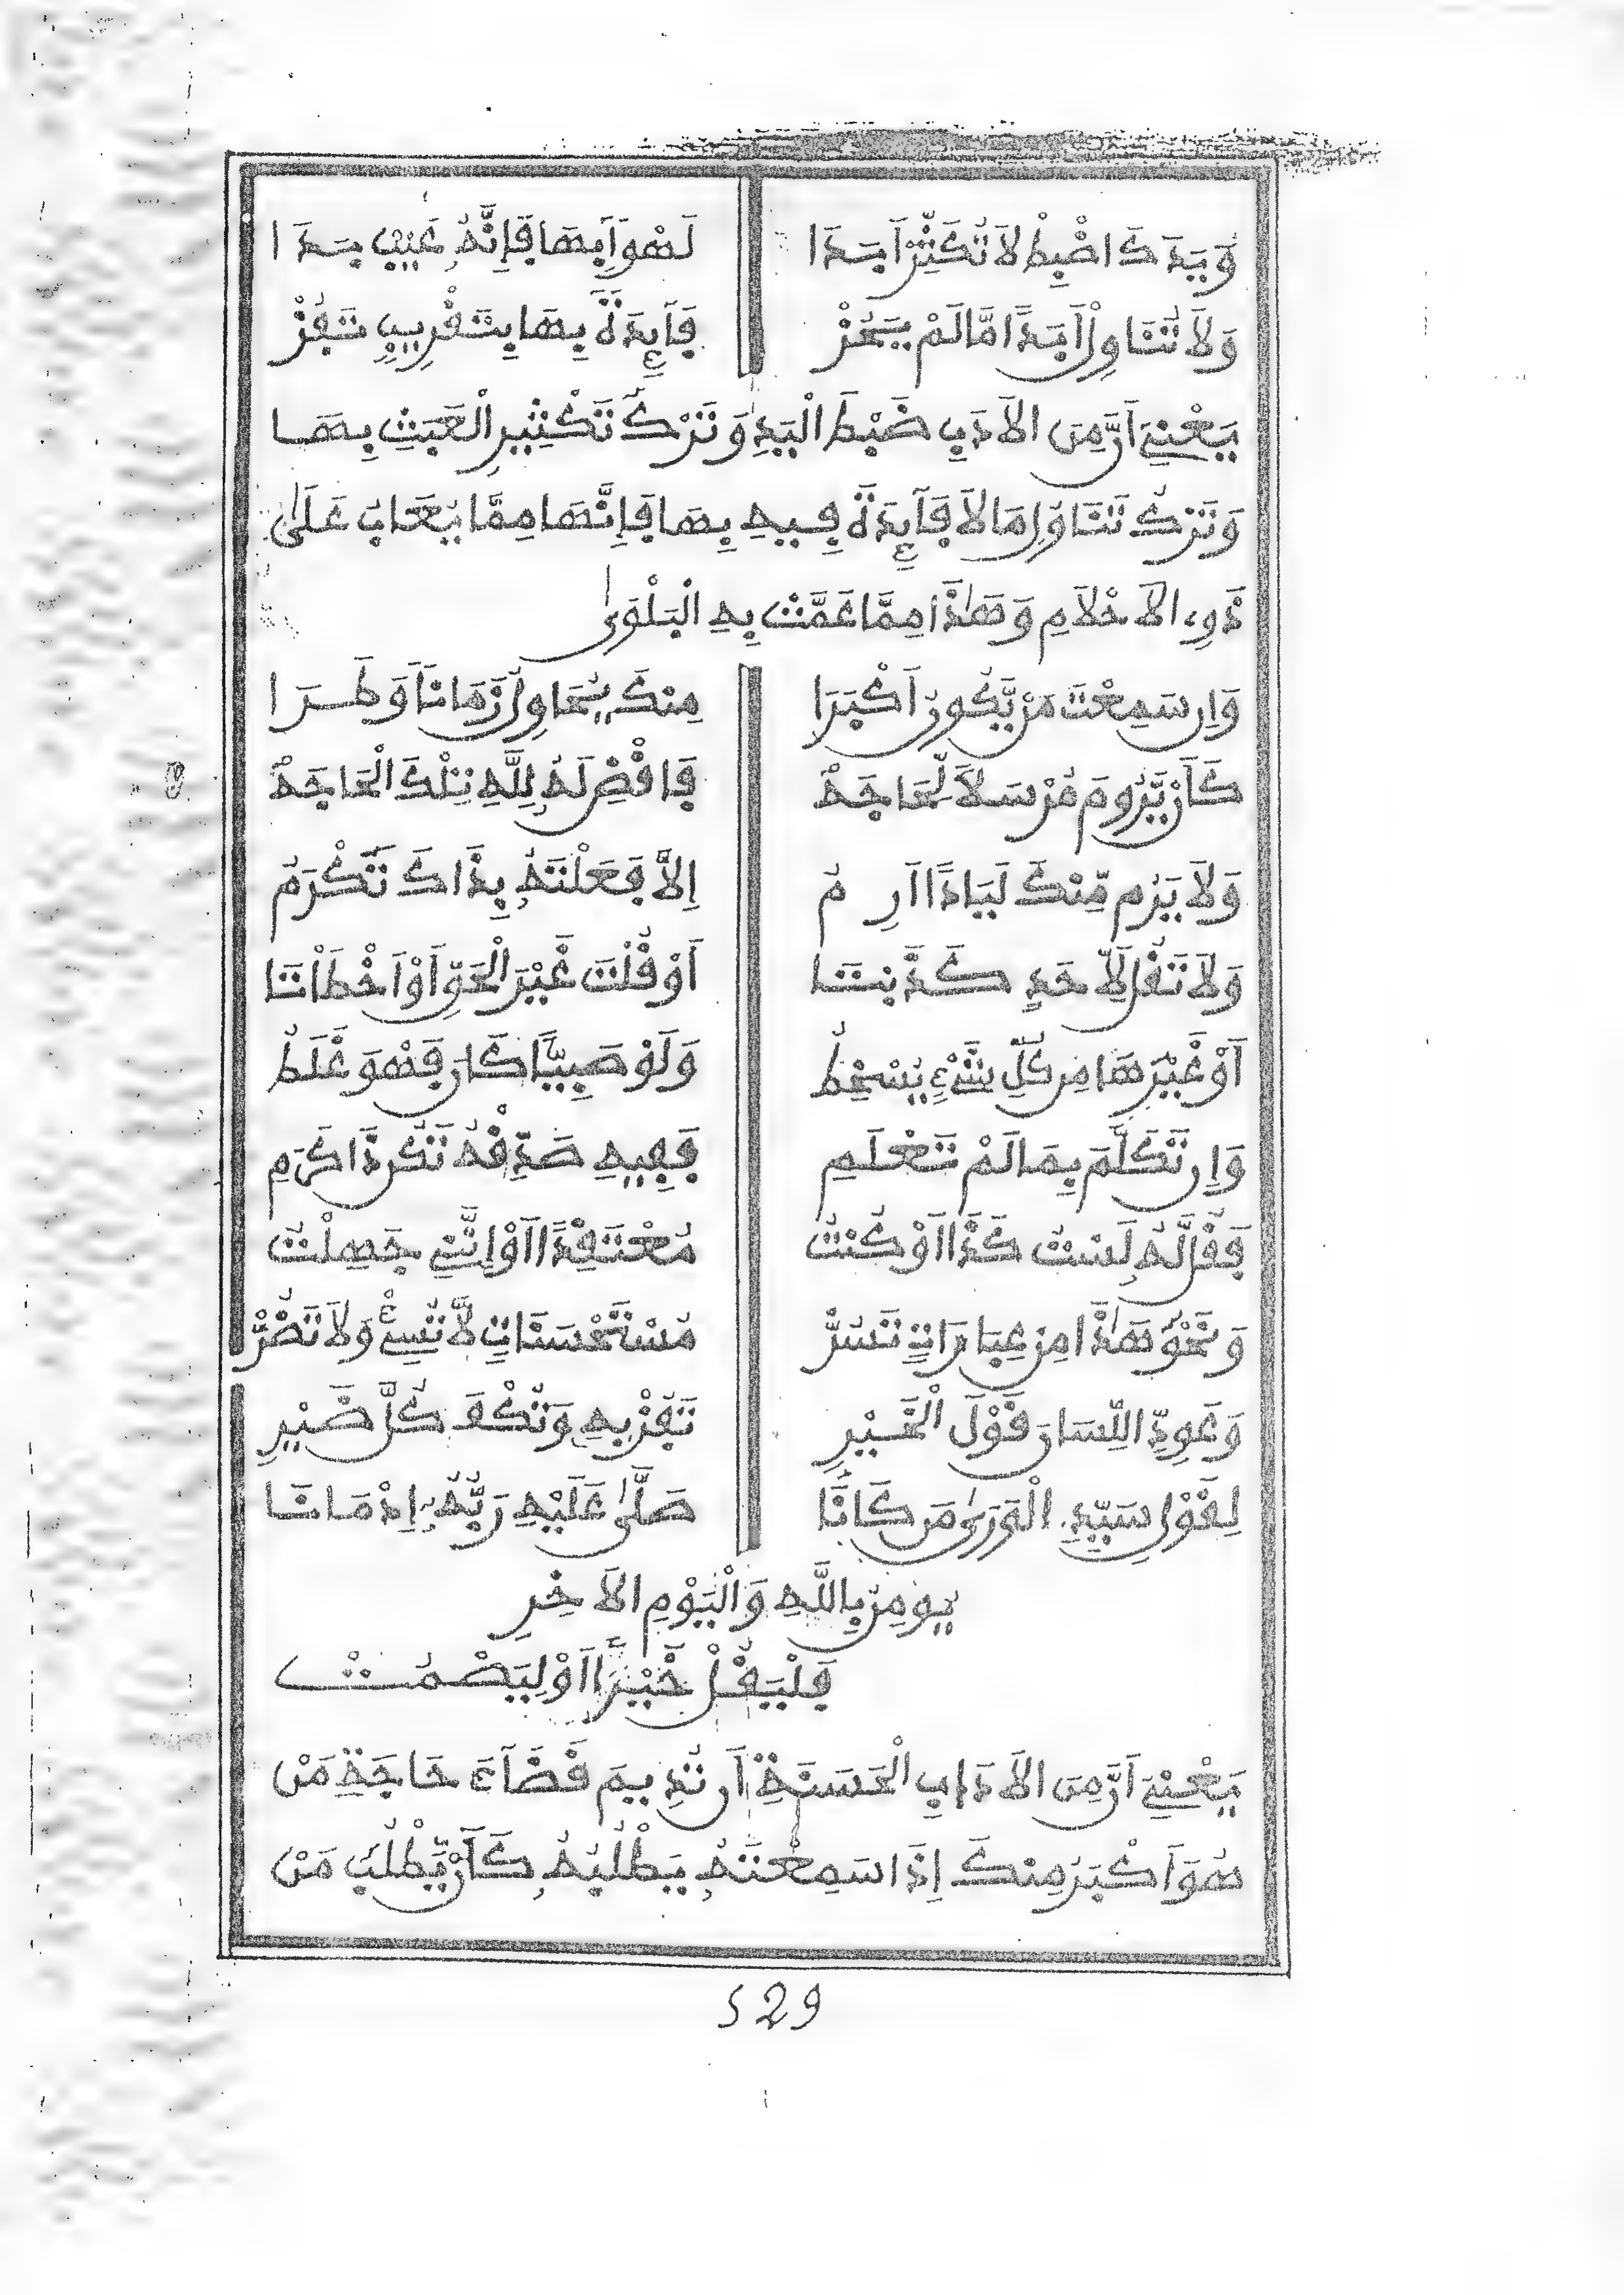 وَيَدَكَ اضْبِطْ لَا تُكَثِّرْ أَبَدَا لَهْوًا بِهَا فَإِنَّهُ عَيْبٌ بَدَا
وَلَا تُنَاوِلْ أَبَدًا مَّا لَمْ يَحُزْ فَآئِدَةً بِهَا بِتَقْرِيبٍ تَفُزْ
يَعْنِي أَنَّ مِنَ الْأَدَبِ ضَبْطَ الْيَدِ وَتَرْكَ تَكْثِيرِ الْعَبَثِ بِهَا
وَتَرْكَ تَنَاوُلِ مَا لَا فَآئِدَةَ فِيهِ بِهَا فَإِنَّهَا مِمَّا يُعَابُ عَلَى
ذَوِي الْأَحْلَامِ وَهَٰذَا مِمَّا عَمَّتْ بِهِ الْبَلْوَى
وَإِن سَمِعْتَ مَن يَّكُونُ أَكْبَرَا مِنكَ يُحَاوِلُ زَمَانًا وَطَرَا
كَأَن يَّرُومَ مُرْسَلًا لِّحَاجَهْ فَاقْضِ لَهُ لِلَّهِ تِلْكَ الْحَاجَهْ
وَلَا يَرُم مِّنكَ لِيَاذًا ارِمُ إِلَّا فَعَلْتَهُ بِذَاكَ تُكْرَمُ
وَلَا تَقُل لِّأَحَدٍ كَذَبْتَا أَوْ قُلْتَ غَيْرَ الْحَقِّ أَوْ أَخْطَأْتَا
أَوْ غَيْرَهَا مِن كُلِّ شَيْءٍ يُسْخِطُ وَلَوْ صَبِيًّا كَانَ فَهْوَ غَلَطُ
وَإِن تَكَلَّمَ بِمَا لَمْ تَعْلَمِ فَفِيهِ صَدِّقْهُ تَكُن ذَا كَرَمِ
فَقُل لَّهُ لَسْتُ كَذَا أَوْ كُنتُ مُعْتَقِدًا أَوْ إِنَّنِي جَهِلْتُ
وَنَحْوُ هَٰذَا مِنْ عِبَارَاتٍ تَسُرّْ مُسْتَحْسَنَاتٍ لَّا تُسِئْ وَلَا تَضُرّْ
وَعَوِّدِ اللِّسَانَ قَوْلَ الْخَيْرِ تَفُزْ بِهِ وَتُكْفَ كُلَّ ضَيْرِ
لِقَوْلِ سَيِّدِ الْوَرَى مَن كَانَا صَلَّى عَلَيْهِ رَبُّهُ إِذْ مَانَا
يُومِنُ بِاللَّهِ وَالْيَوْمِ الْآخِرِ
فَلْيَقُلْ خَيْرًا أَوْ لِيَصْمُتْ
يَعْنِي أَنَّ مِنَ الْأَدَابِ الْحَسَنَةِ أَن تُدِيمَ قَضَآءَ حَاجَةِ مَنْ
هُوَ أَكْبَرُ مِنكَ إِذَا سَمِعْتَهُ يَطْلُبُهُ كَأَن يَّطْلُبَ مَنْ
529